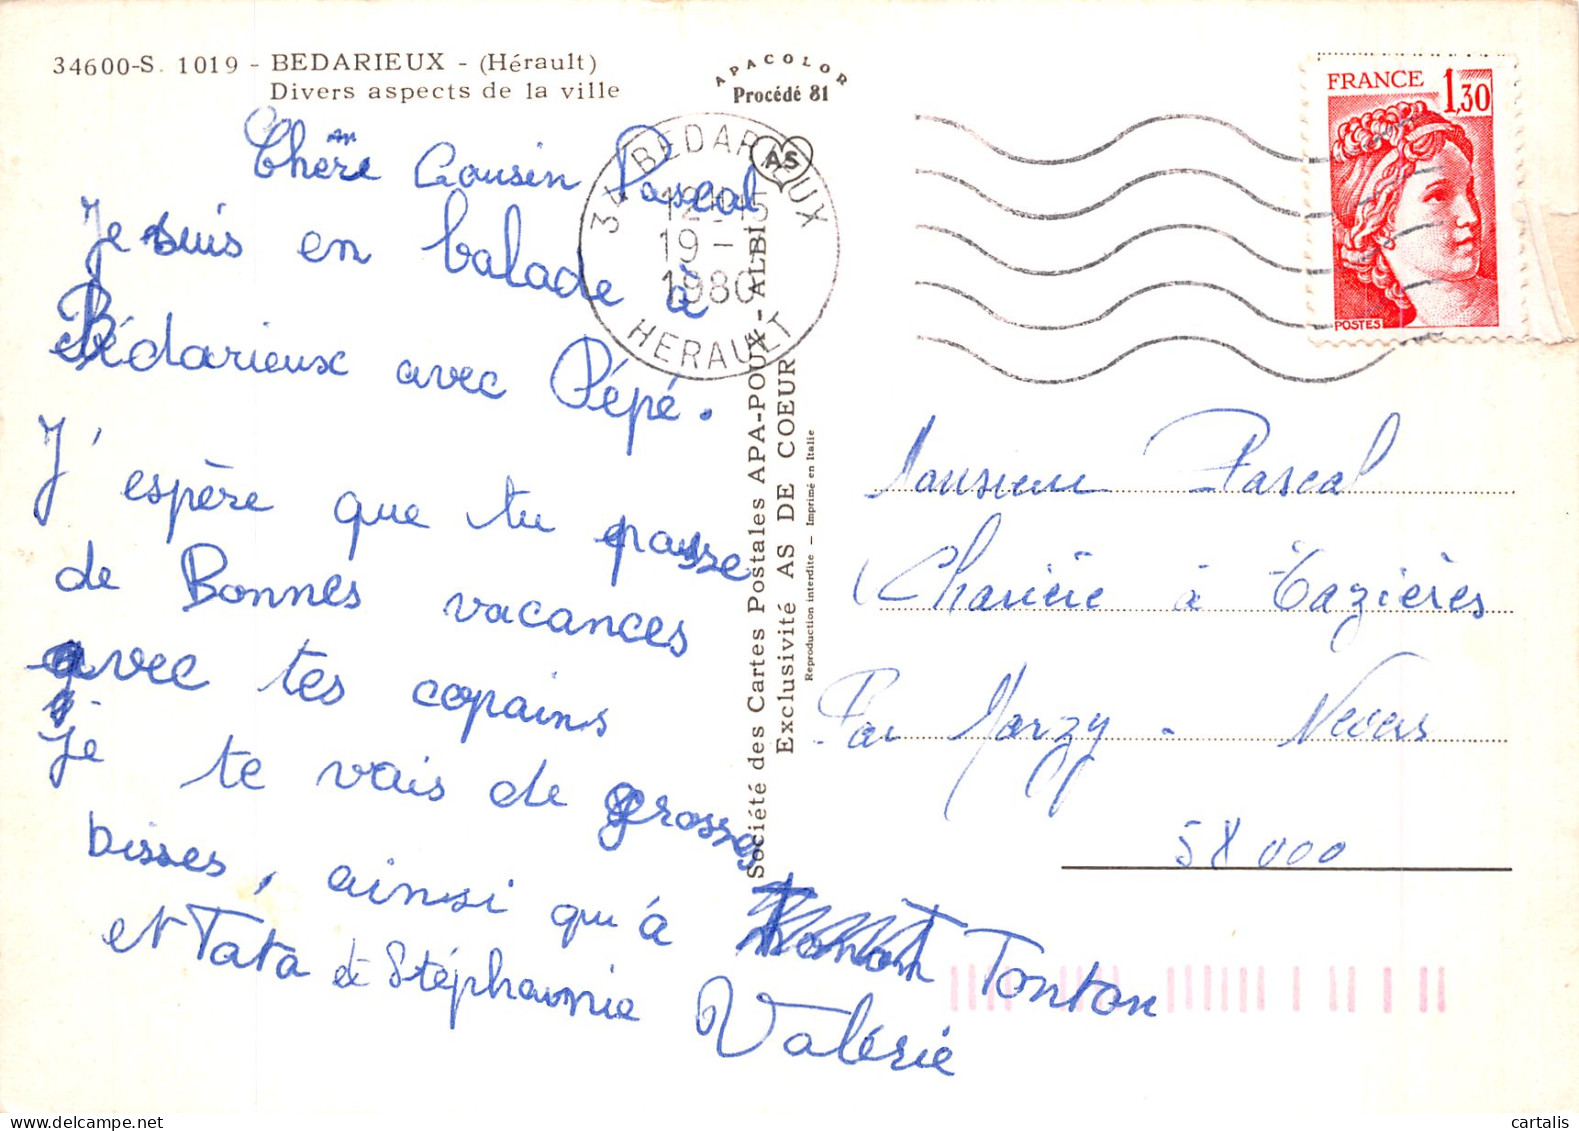 34600-S. 1019 - BEDARIEUX - (Hérault)
Divers aspects de la ville
APACOLOR
Procédé 81
AS
FRANCE 1,30
POSTES
34 BEDARIEUX
19 -
1980
HERAULT
Chère Cousin Pascal
Je suis en balade à
Bédarieux avec Pépé.
J'espère que tu passe
de Bonnes vacances
avec tes copains
je te vais de grosses
bisses, ainsi qu'à Tonton
et Tata et Stéphanie
Valérie
Société des Cartes Postales APA-POUX - ALBI
Exclusivité AS DE COEUR
Reproduction interdite — Imprimé en Italie
Monsieur Pascal
à Tazières
Par Marzy - Nevers
58000
cartalis